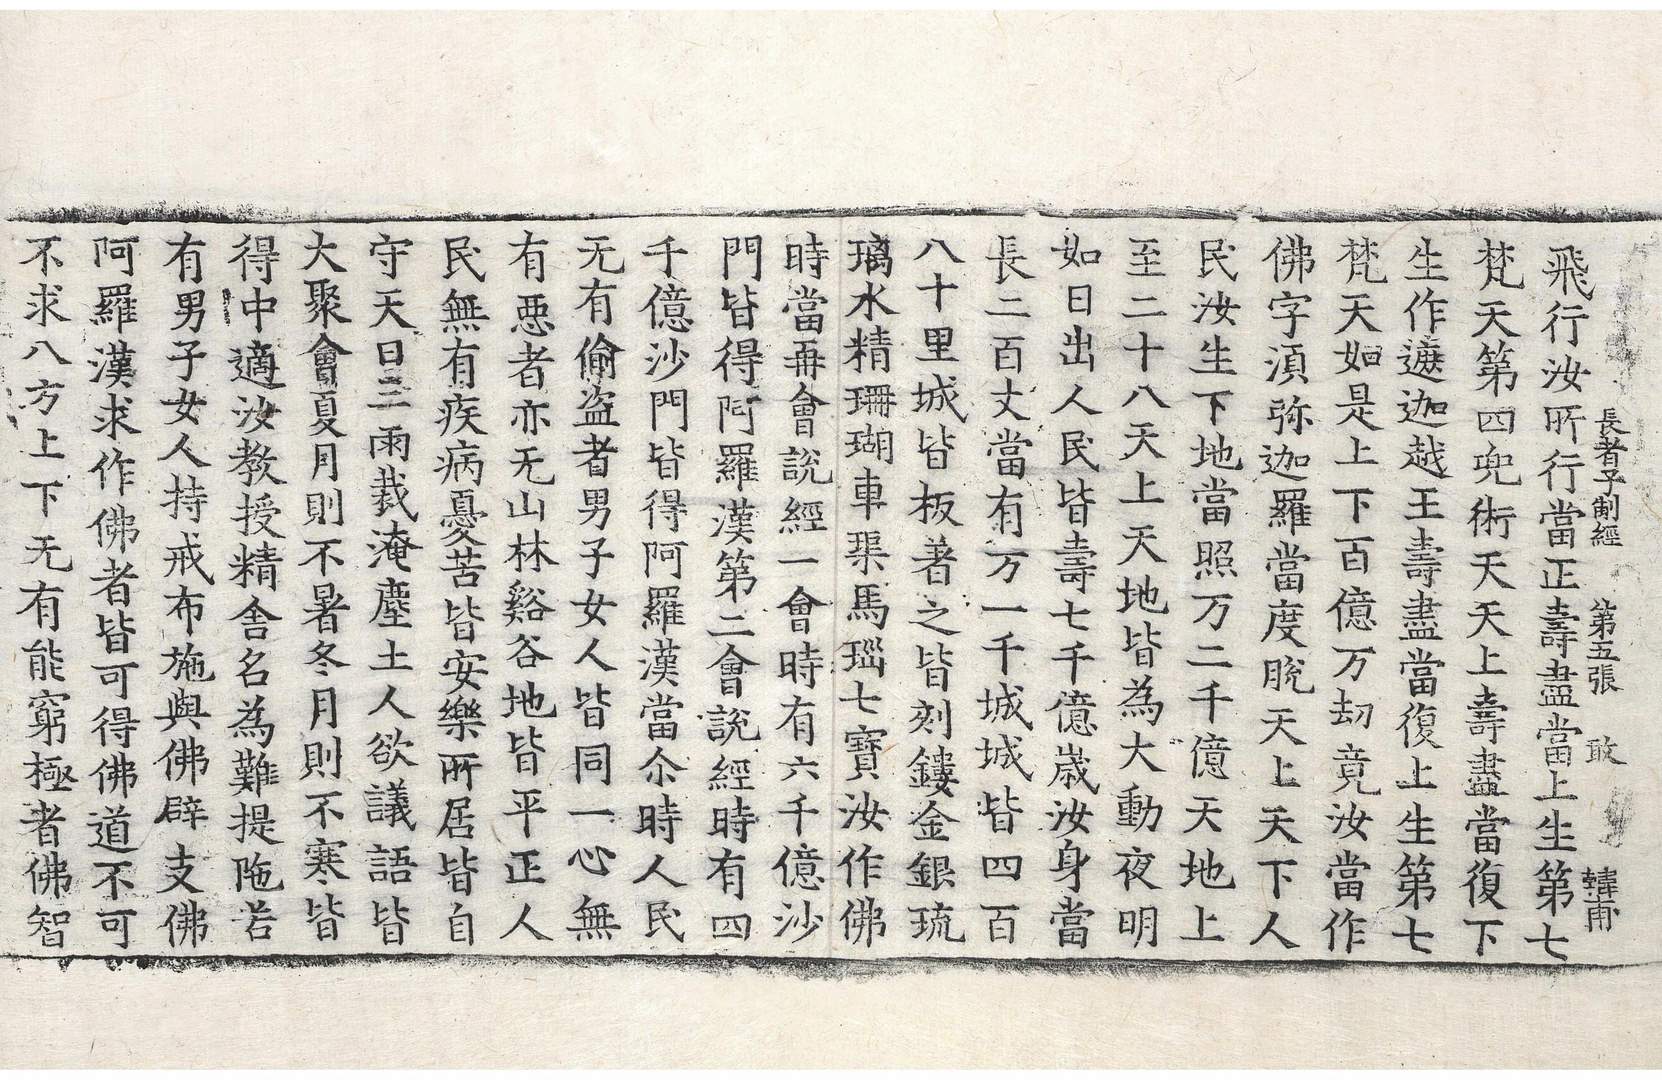 長者子制經 第五張 敢 韓甫
飛行汝所行當正壽盡當上生第七
梵天第四兜術天天上壽盡當復下
生作遮迦越王壽盡當復上生第七
梵天如是上下百億万劫竟汝當作
佛字湏弥迦羅當度脫天上天下人
民汝生下地當照万二千億天地上
至二十八天上天地皆為大動夜明
如日出人民皆壽七千億歳汝身當
長二百丈當有万一千城城皆四百
八十里城皆板著之皆刻鏤金銀琉
璃水精珊瑚車渠馬瑙七寶汝作佛
時當再會說經一會時有六千億沙
門皆得阿羅漢第二會說經時有四
千億沙門皆得阿羅漢當尒時人民
无有偷盗者男子女人皆同一心無
有悪者亦无山林谿谷地皆平正人
民無有疾病憂苦皆安樂所居皆自
守天日三雨裁淹塵土人欲議語皆
大聚會夏月則不暑冬月則不寒皆
得中適汝教授精舎名為難提陁若
有男子女人持戒布施與佛辟支佛
阿羅漢求作佛者皆可得佛道不可
不求八方上下无有能窮極者佛智